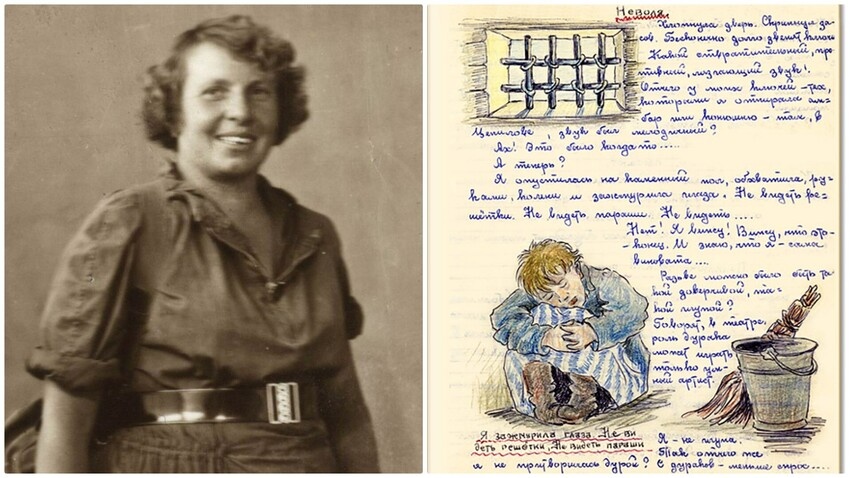 Неволя
Хлопнула дверь. Скрипнул за-
сов. Бесконечно долго звенят ключи
Какой отвратительный, про-
тивный, лязгающий звук!
Отчего у моих ключей – тех,
которыми я отпирала ам-
бар или конюшню – там, в
Цепилове, звук был мелодичный?
Ах! Это было когда-то.....
А теперь?
Я опустилась на каменный пол, обхватила ру-
ками, колени и зажмурила глаза. Не видеть ре-
шётки. Не видеть параши. Не видеть ....
Нет! Я вижу! Вижу, что это-
-конец. И знаю, что я – сама
виновата....
Разве можно было быть та-
кой доверчивой, та-
кой глупой?
Говорят, в театре,
роль дурака
может играть
только ум-
ный артист.
Я зажмурила глаза. Не ви
деть решётки, Не видеть параши
Я – не глупа.
Так отчего же
я не притворилась дурой? С дураков – меньше спрос....